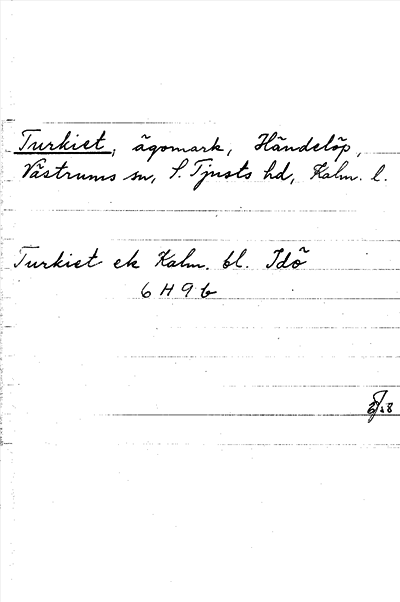 Turkiet, ägomark, Händelöp,
Västrums sn, S. Tjusts hd, Kalm. l.
Turkiet ek Kalm. bl. Idö
6 H 9 b